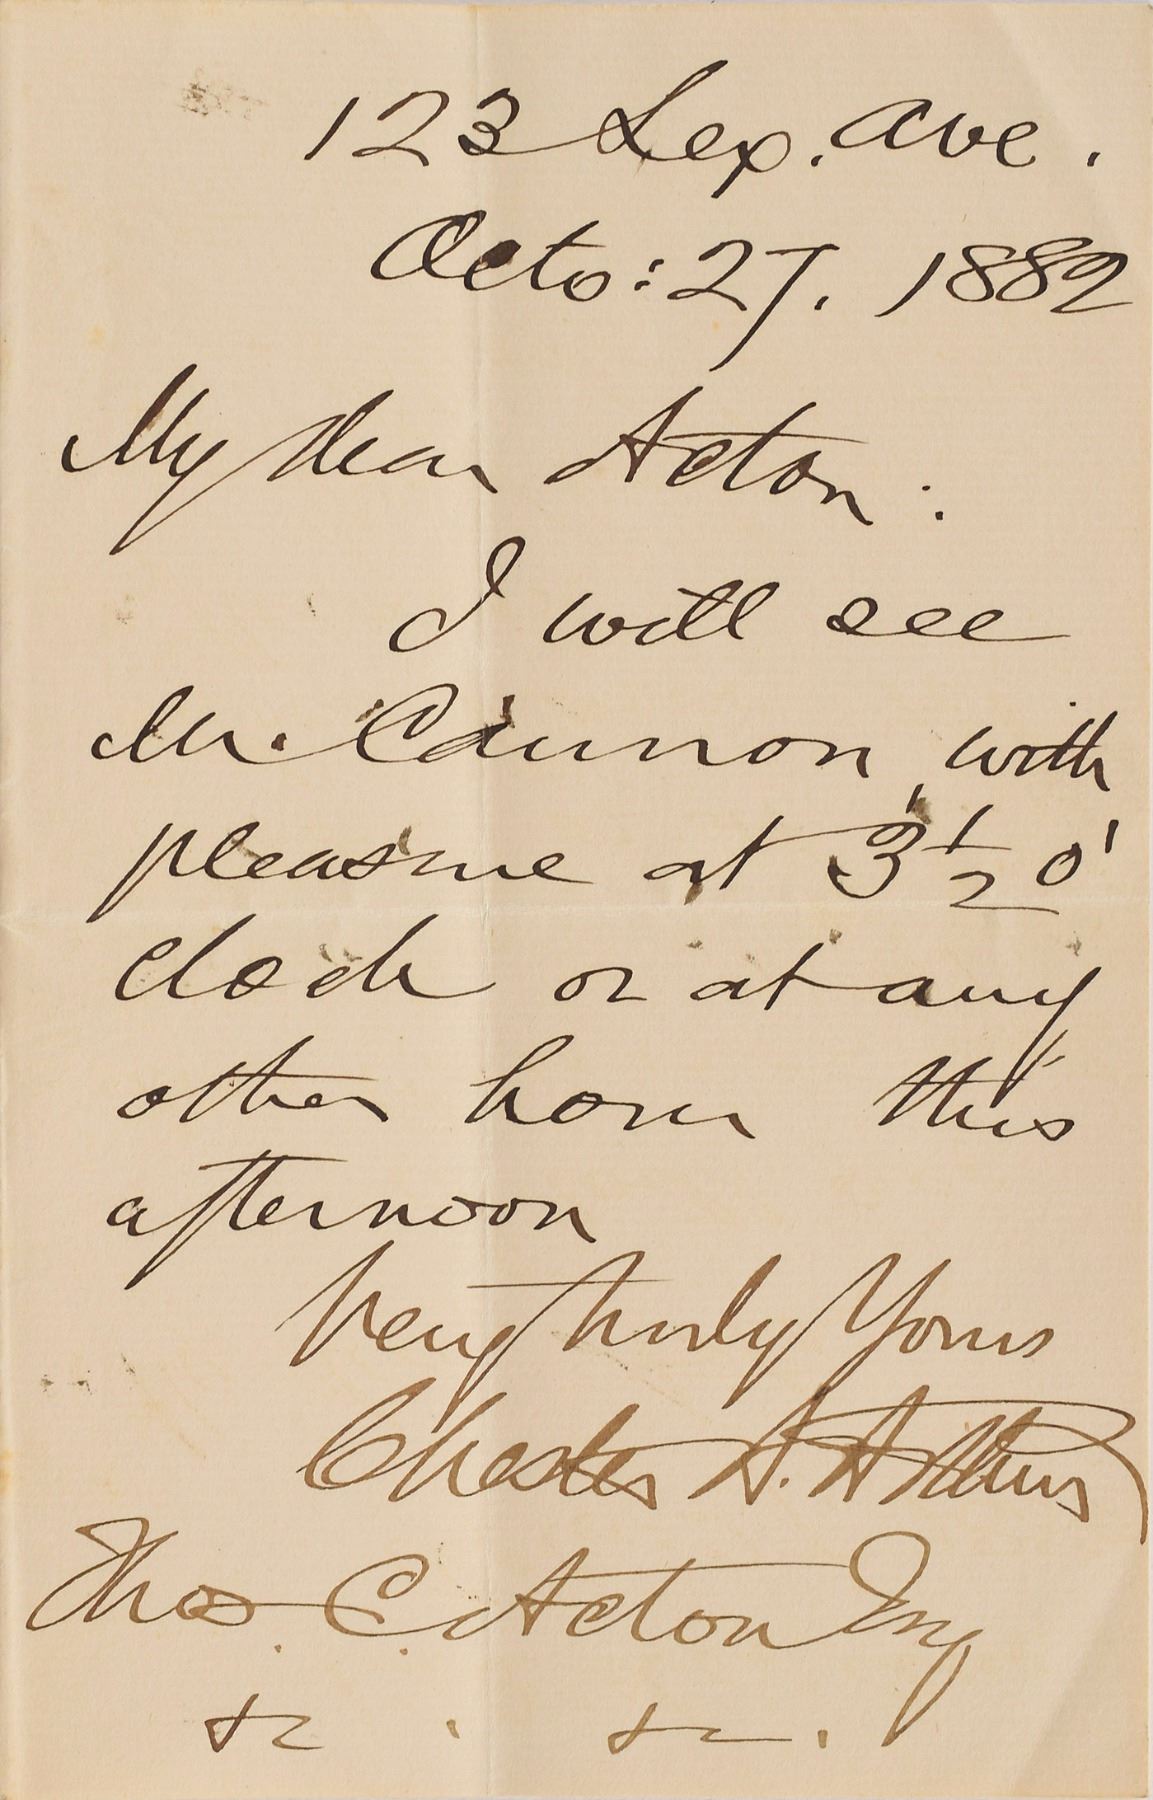 123 Lex. Ave.
Octo: 27. 1882
My dear Acton:
I will see
Mr. Cannon with
pleasure at 3 1/2 o'
clock or at any
other hour this
afternoon
Very truly Yours
Chester A. Arthur
Thos. C. Acton Esq
&c. &c.